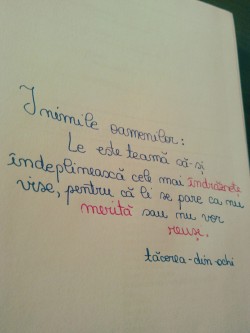 Inimile oamenilor:
Le este teamă că-și
îndeplinească cele mai îndrăznețe
vise, pentru că li se pare ca nu
merită sau nu vor
reuși.
tăcerea-din-ochi